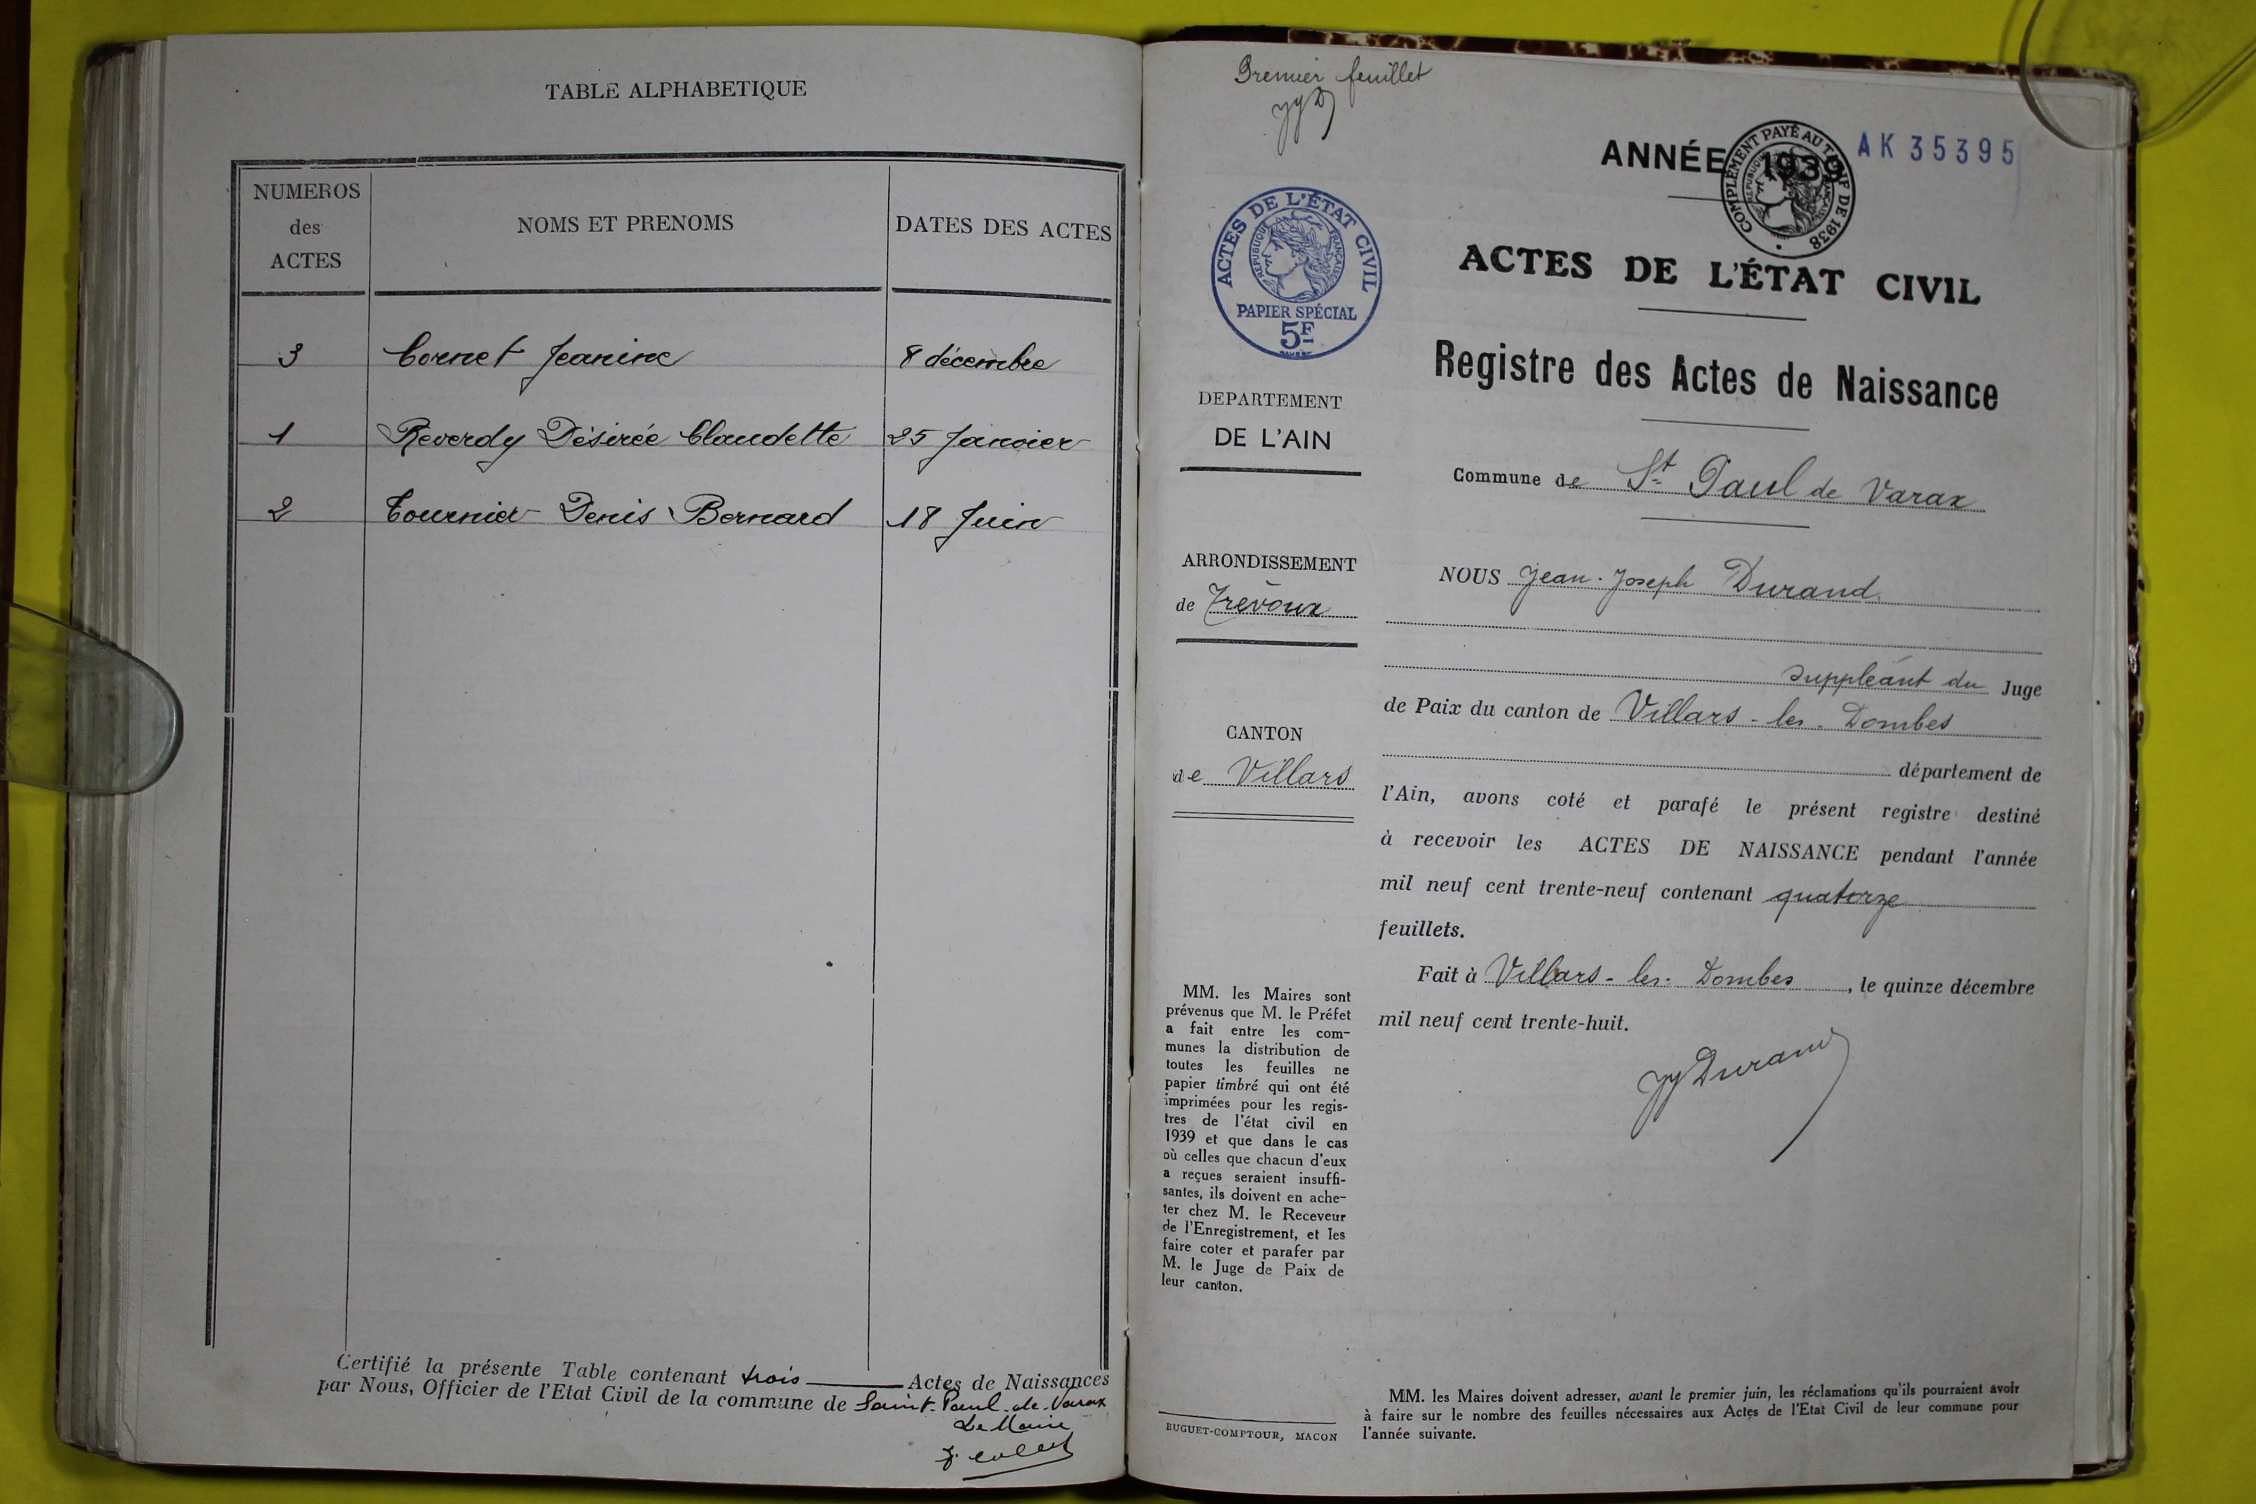 TABLE ALPHABETIQUE
NUMEROS
des
ACTES
NOMS ET PRENOMS
DATES DES ACTES
3 Cornet Jeanine 8 décembre
1 Reverdy Désirée Claudette 25 Janvier
2 Tournier Denis Bernard 18 Juin
Certifié la présente Table contenant trois Actes de Naissances
par Nous, Officier de l'Etat Civil de la commune de Saint-Paul-de-Varax
Le Maire
Premier feuillet
ANNÉE 1939
COMPLÉMENT PAYÉ AU TARIF DE 1938
RÉPUBLIQUE FRANÇAISE
AK 35395
ACTES DE L'ÉTAT CIVIL
RÉPUBLIQUE FRANÇAISE
PAPIER SPÉCIAL
5F
ACTES DE L'ÉTAT CIVIL
Registre des Actes de Naissance
DEPARTEMENT
DE L'AIN
Commune de St Paul de Varax
ARRONDISSEMENT
de Trévoux
CANTON
de Villars
NOUS Jean-Joseph Durand
suppléant du Juge
de Paix du canton de Villars-les-Dombes
département de
l'Ain, avons coté et parafé le présent registre destiné
à recevoir les ACTES DE NAISSANCE pendant l'année
mil neuf cent trente-neuf contenant quatorze
feuillets.
Fait à Villars-les-Dombes, le quinze décembre
mil neuf cent trente-huit.
JJ Durand
MM. les Maires sont
prévenus que M. le Préfet
a fait entre les com-
munes la distribution de
toutes les feuilles ne
papier timbré qui ont été
imprimées pour les regis-
tres de l'état civil en
1939 et que dans le cas
où celles que chacun d'eux
a reçues seraient insuffi-
santes, ils doivent en ache-
ter chez M. le Receveur
de l'Enregistrement, et les
faire coter et parafer par
M. le Juge de Paix de
leur canton.
BUGUET-COMPTOUR, MACON
MM. les Maires doivent adresser, avant le premier juin, les réclamations qu'ils pourraient avoir
à faire sur le nombre des feuilles nécessaires aux Actes de l'Etat Civil de leur commune pour
l'année suivante.